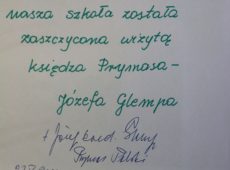 nasza szkoła została
zaszczycona wizytą
księdza Prymasa –
Józefa Glempa
+ Józef kard. Glemp
Prymas Polski